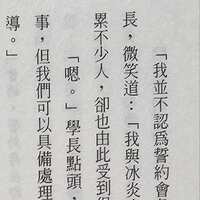 「我並不認爲誓約會
長，微笑道：「我與冰炎
累不少人，卻也由此受到
「嗯。」學長點頭，
事，但我們可以具備處理
導。」